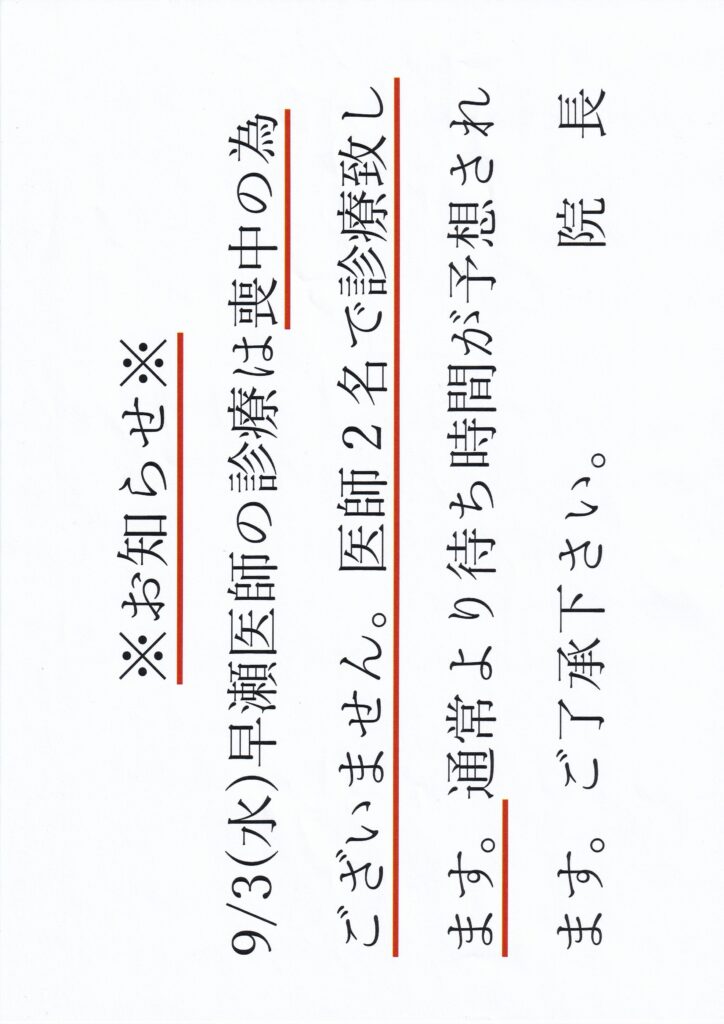 ※お知らせ※
9/3(水)早瀬医師の診療は喪中の為
ございません。医師2名で診療致し
ます。通常より待ち時間が予想され
ます。ご了承下さい。 院 長